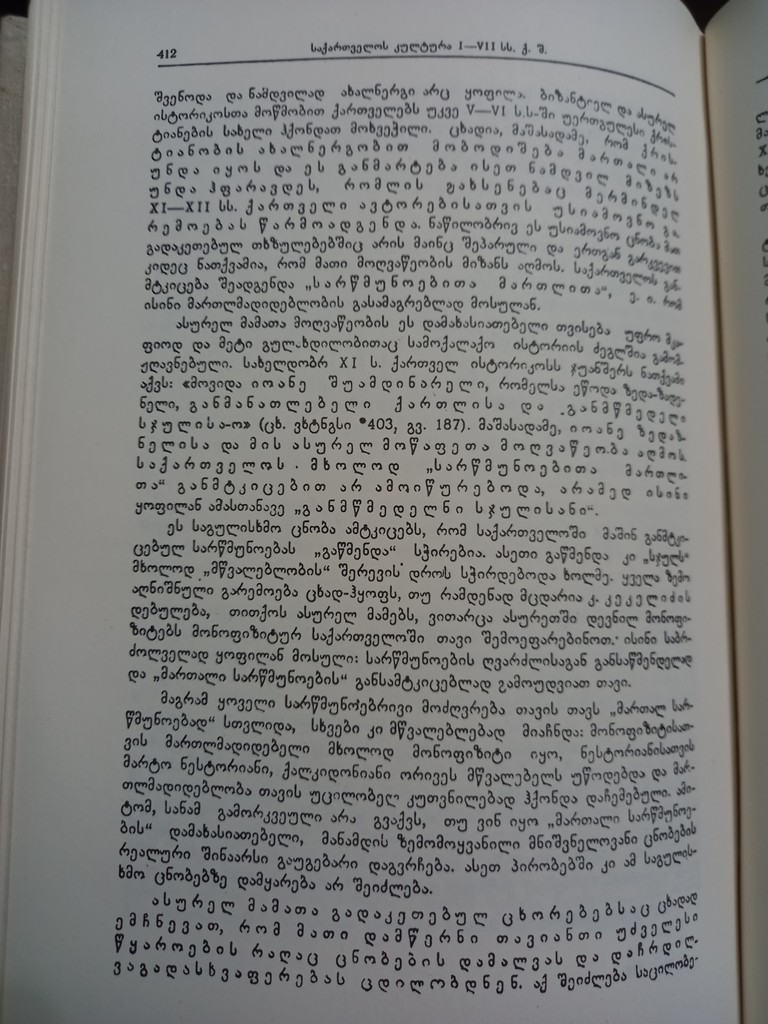 412
საქართველოს კულტურა I—VII სს. ქ. შ.
შვენოდა და ნამდვილად ახალნერგი არც ყოფილა. ბიზანტიელ და ასურელ
ისტორიკოსთა მოწმობით ქართველებს უკვე V—VI ს.ს-ში უერთგულესი ქრის-
ტიანების სახელი ჰქონდათ მოხვეჭილი. ცხადია, მაშასადამე, რომ ქრის-
ტიანობის ახალნერგობით მობოდიშება მართალი არ
უნდა იყოს და ეს განმარტება ისეთ ნამდვილ მიზეზს
უნდა ჰფარავდეს, რომლის გახსენებაც მერმინდელ
XI—XII სს. ქართველი ავტორებისათვის უსიამოვნო გა-
რემოებას წარმოადგენდა. ნაწილობრივ ეს უსიამოვნო ცნობა მათ
გადაკეთებულ თხზულებებშიც არის მაინც შეპარული და ერთგან გარკვევით
კიდეც ნათქვამია, რომ მათი მოღვაწეობის მიზანს აღმოს. საქართველოს გან-
მტკიცება შეადგენდა „სარწმუნოებითა მართლითა“, ე. ი. რომ
ისინი მართლმადიდებლობის გასამაგრებლად მოსულან.
ასურელ მამათა მოღვაწეობის ეს დამახასიათებელი თვისება უფრო მკა-
ფიოდ და მეტი გულ-ხდილობითაც სამოქალაქო ისტორიის ძეგლშია გამომ-
ჟღავნებული. სახელდობრ XI ს. ქართველ ისტორიკოსს ჯუანშერს ნათქვამი
აქვს: «მოვიდა იოანე შუამდინარელი, რომელსა ეწოდა ზედა-ზადე-
ნელი, განმანათლებელი ქართლისა და განმწმედელი
სჯულისა-ო» (ცხ. ვხტნგსი *403, გვ. 187). მაშასადამე, იოანე ზედაზ-
ნელისა და მის ასურელ მოწაფეთა მოღვაწეობა აღმოს.
საქართველოს. მხოლოდ „სარწმუნოებითა მართლი-
თა“ განმტკიცებით არ ამოიწურებოდა, არამედ ისინი
ყოფილან ამასთანავე „განმწმედელნი სჯულისანი“.
ეს საგულისხმო ცნობა ამტკიცებს, რომ საქართველოში მაშინ განმტკი-
ცებულ სარწმუნოებას „გაწმენდა“ სჭირებია. ასეთი გაწმენდა კი „სჯულს“
მხოლოდ „მწვალებლობის“ შერევის დროს სჭირდებოდა ხოლმე. ყველა ზემო
აღნიშნული გარემოება ცხად-ჰყოფს, თუ რამდენად მცდარია კ. კეკელიძის
დებულება, თითქოს ასურელ მამებს, ვითარცა ასურეთში დევნილ მონოფი-
ზიტებს მონოფიზიტურ საქართველოში თავი შემოეფარებინოთ. ისინი საბრ-
ძოლველად ყოფილან მოსული: სარწმუნოების ღვარძლისაგან განსაწმენდელად
და „მართალი სარწმუნოების“ განსამტკიცებლად გამოუდვიათ თავი.
მაგრამ ყოველი სარწმუნოებრივი მოძღვრება თავის თავს „მართალ სარ-
წმუნოებად“ სთვლიდა, სხვები კი მწვალებლებად მიაჩნდა: მონოფიზიტისათ-
ვის მართლმადიდებელი მხოლოდ მონოფიზიტი იყო, ნესტორიანისათვის
მარტო ნესტორიანი, ქალკიდონიანი ორივეს მწვალებელს უწოდებდა და მარ-
თლმადიდებლობა თავის უცილობელ კუთვნილებად ჰქონდა დაჩემებული. ამი-
ტომ, სანამ გამორკვეული არა გვაქვს, თუ ვინ იყო „მართალი სარწმუნოე-
ბის“ დამახასიათებელი, მანამდის ზემომოყვანილი მნიშვნელოვანი ცნობების
რეალური შინაარსი გაუგებარი დაგვრჩება. ასეთ პირობებში კი ამ საგულის-
ხმო ცნობებზე დამყარება არ შეიძლება.
ასურელ მამათა გადაკეთებულ ცხორებებსაც ცხადად
ემჩნევათ, რომ მათი დამწერნი თავიანთი უძველესი
წყაროების რაღაც ცნობების დამალვას და დაჩრდილ-
ვაგადასხვაფერებას ცდილობდნენ. აქ შეიძლება საცილობე-